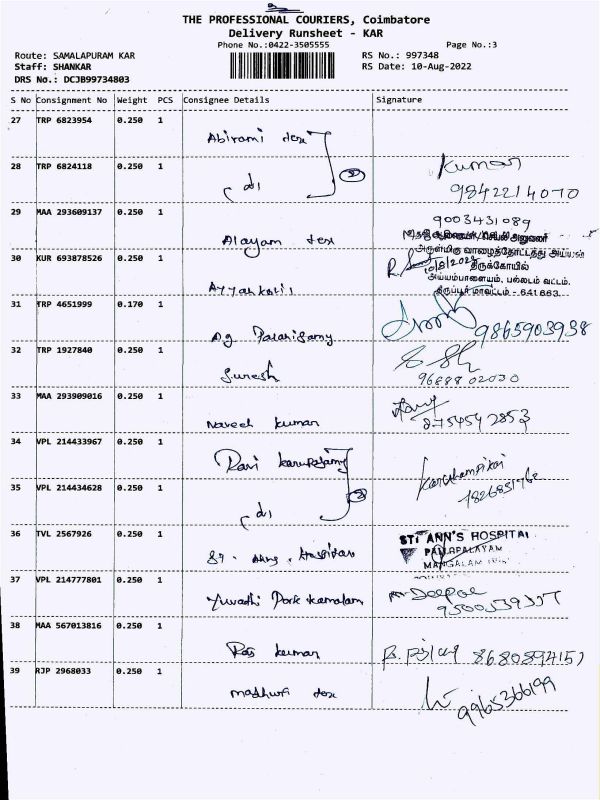 THE PROFESSIONAL COURIERS, Coimbatore
Delivery Runsheet - KAR
Phone No.:0422-3505555
Page No.:3
Route: SAMALAPURAM KAR
RS No.: 997348
Staff: SHANKAR
RS Date: 10-Aug-2022
DRS No.: DCJB99734803
S No Consignment No Weight PCS Consignee Details Signature
27 TRP 6823954 0.250 1
Abirami tex
28 TRP 6824118 0.250 1 Kumar
(di) 2 9842214070
29 MAA 293609137 0.250 1 9003431089
Alayam tex
அருள்மிகு வாழைத்தோட்டத்து அய்யன்
30 KUR 693878526 0.250 1 10/8/2022 திருக்கோயில்
அய்யம்பாளையம், பல்லடம் வட்டம்.
Ayyankovil திருப்பூர் மாவட்டம் - 641 663.
31 TRP 4651999 0.170 1
Palanisamy 9865903938
32 TRP 1927840 0.250 1
Suresh 96888 02030
33 MAA 293909016 0.250 1
Naveen kumar 875454 2853
34 VPL 214433967 0.250 1
Ravi
35 VPL 214434628 0.250 1
(di) 2
36 TVL 2567926 0.250 1 ST. ANN'S HOSPITAL
PALLAPALAYAM
MANGALAM
37 VPL 214777801 0.250 1 Deepak
38 MAA 567013816 0.250 1
Raj kumar 8680894157
39 RJP 2968033 0.250 1
tex 9965366199